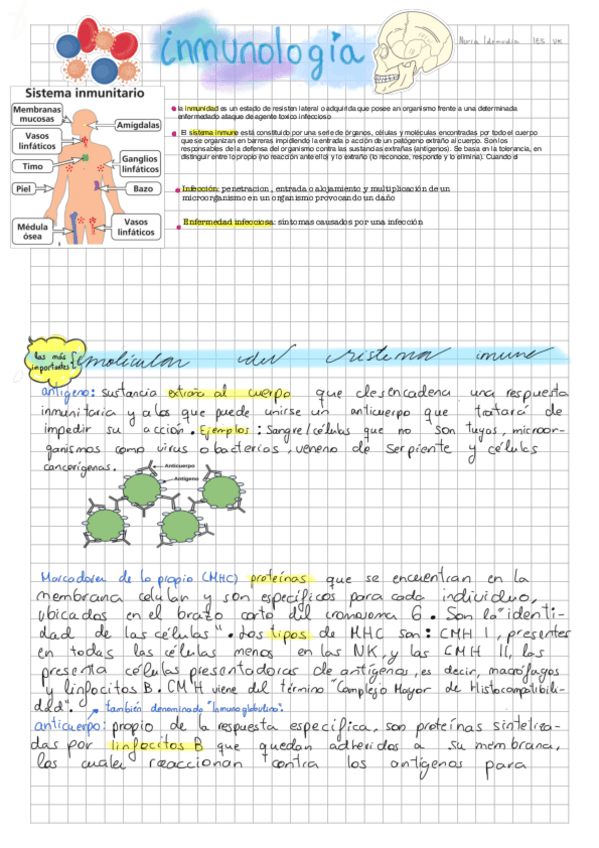 inmunología
Nuria IES
Sistema inmunitario
Membranas mucosas
Vasos linfáticos
Timo
Piel
Médula ósea
Amígdalas
Ganglios linfáticos
Bazo
Vasos linfáticos
la inmunidad es un estado de resisten lateral o adquirida que posee an organismo frente a una determinada
enfermedado ataque de agente toxico infeccioso
El sistema inmune está constituido por una serie de órganos, células y moléculas encontradas por todo el cuerpo
que se organizan en barreras impidiendo la entrada o acción de un patógeno extraño al cuerpo. Son los
responsables de la defensa del organismo contra las sustancias extrañas (antígenos). Se basa en la tolerancia, en
distinguir entre lo propio (no reacción ante ello) y lo extraño (lo reconoce, responde y lo elimina). Cuando el
Infección: penetracion , entrada o alojamiento y multiplicación de un
microorganismo en un organismo provocando un daño
Enfermedad infecciosa: sintomas causados por una infección
las más
importantes
moléculas del sistema inmune
antígeno: sustancia extraña al cuerpo que desencadena una respuesta
inmunitaria y a los que puede unirse un anticuerpo que tratará de
impedir su acción. Ejemplos: Sangre/células que no son tuyas, microor-
ganismos como virus o bacterias, veneno de serpiente y células
cancerígenas.
Anticuerpo
Antígeno
Marcadores de lo propio (MHC) proteínas que se encuentran en la
membrana celular y son específicos para cada individuo,
ubicados en el brazo corto del cromosoma 6. Son la "identi-
dad de las células". Los tipos de MHC son: CMH I, presentes
en todas las células menos en las NK, y las CMH II, las
presenta células presentadoras de antígenos, es decir, macrófagos
y linfocitos B. CMH viene del término "Complejo Mayor de Histocompatibili-
ddd".
también denominado "Inmunoglobulina".
anticuerpo: propio de la respuesta específica, son proteínas sintetiza-
das por linfocitos B que quedan adheridos a su membrana,
los cuales reaccionan contra los antígenos para